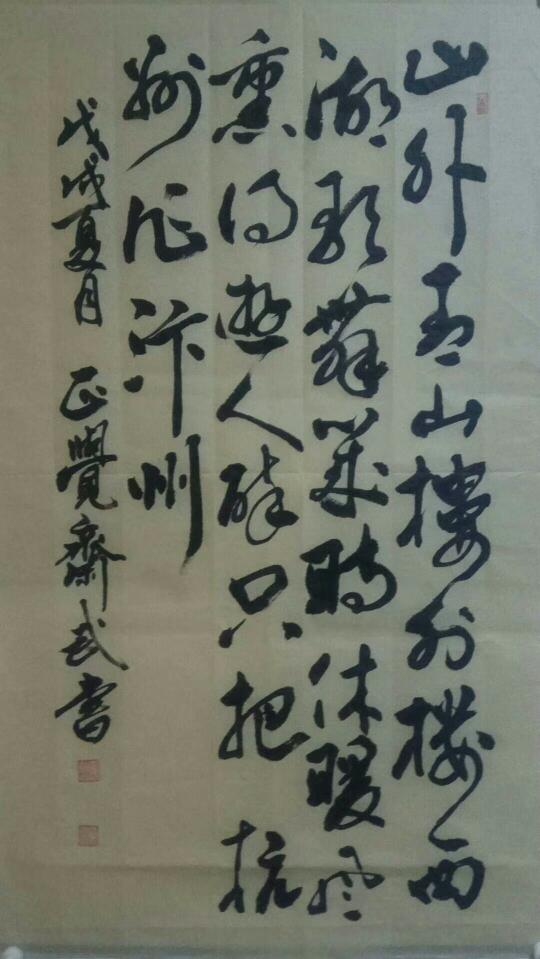 山外青山楼外楼西
湖歌舞几时休暖风
熏得遊人醉只把杭
州作汴州
戊戌夏月 正覺齋武書